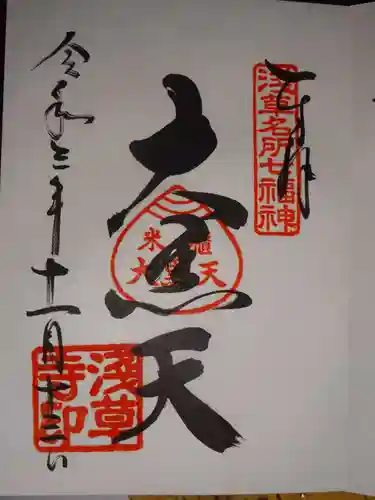 奉拝
浅草名所七福神
大黒天
米櫃大黒天
令和三年十一月十三日
浅草寺印